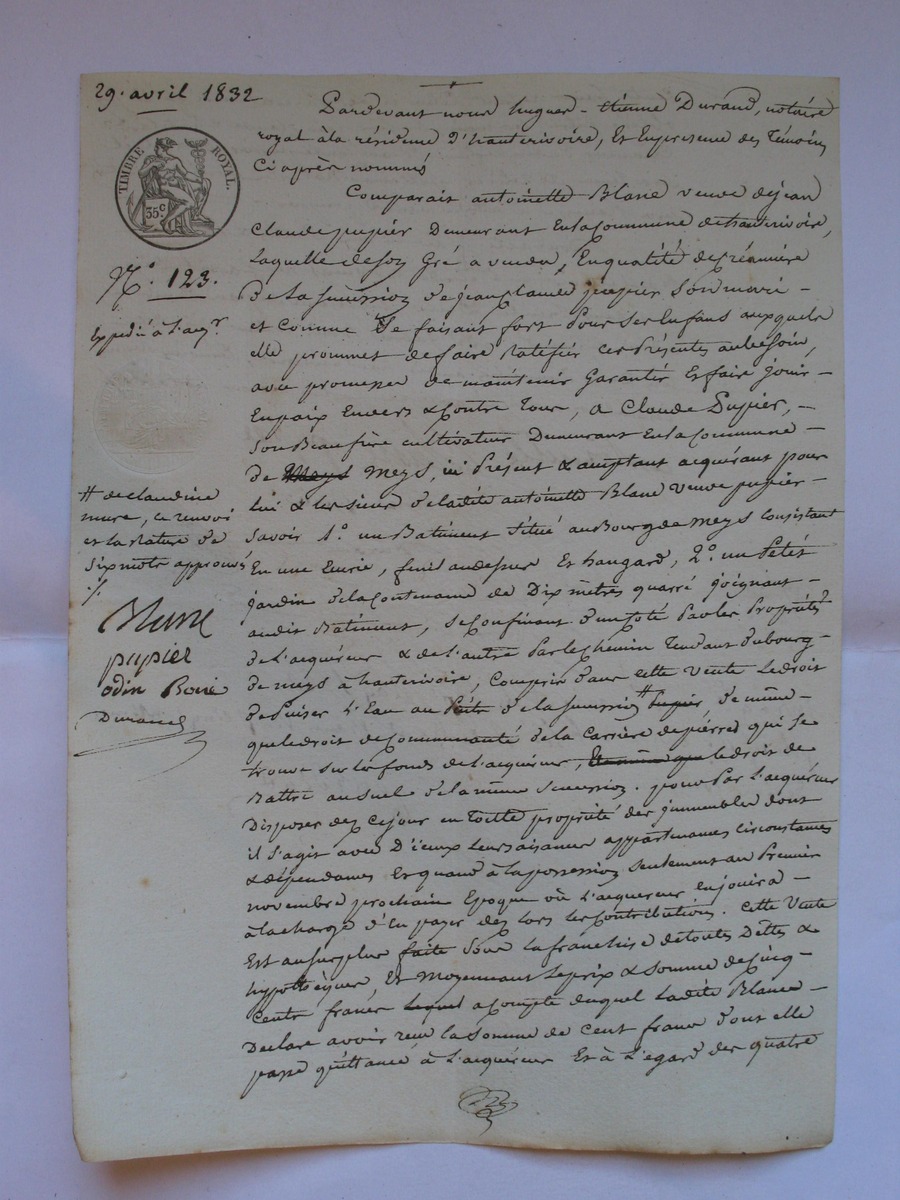 29. avril 1832
TIMBRE ROYAL.
35c
N.º 123.
Expedié à l'aqr
# de claudine
mure, ce renvoi
et la rature de
six mots approuvés
Mure
pupier
odin
Durand
Pardevant nous hugues - étienne Durand, notaire
royal à la résidence d'hauterivoire, Et En presence des Témoins
Ci après nommés
Comparait antoinette Blanc veuve de jean
Claude pupier Demeurant En la Commune d'hauterivoire,
Laquelle de son Gré a vendu, En qualité de créancière
De La succession de jean claude pupier son mari -
et Comme Se faisant fort Pour ses Enfans auxquels
elle prommet de faire Ratifier ces Présentes au besoin,
avec promesse de maintenir Garantir Et faire jouir -
En paix Envers & Contre Tous, a Claude Pupier, -
Son Beaufrère cultivateur Demeurant En la Commune -
De Meys Meys, ici Présent & acceptant acquérant pour
lui & les siens de ladite antoinette Blanc Veuve pupier -
Savoir 1.º un Batiment Situé au Bourg de Meys Consistant
En une Ecurie, fenil au dessus Et hangard, 2.º un Petit
jardin de la Contenance de Dix mètres quarré joignant -
audit Bâtiment, se Confinant d'un Coté Par les Propriétés
De L'acquéreur & de L'autre Par le Chemin Tendant du bourg -
de meys à hauterivoire, Compris dans cette Vente Le droit
de Puiser l'Eau au de la succession # Pupier, de même -
que le droit de Communauté de la Carrière de pierres qui se
trouve sur les fonds de L'acquéreur, Et même que le droit de
Battre au Suel de la même Succession. pour Par L'acquéreur
Disposer dez Ce jour en Toute propriété des jmmeubles dont
il s'agit avec D'iceux Leurs aisances appartenances circonstances
& dépendances Et quand à la possession Seulement au Premier
novembre prochain Epoque où L'acquereur En jouira -
à la charge d'En payer dez lors les Contributions. Cette Vente
Est au surplus faite Sous La franchise de toutes Dettes &
hypothèques, Et Moyennant Le prix & Somme de Cinq -
Cents francs Lequel a Compte duquel Ladite Blanc -
Declare avoir reçu la Somme de Cent francs dont elle
passe quittance à L'acquéreur Et à L'égard des quatre